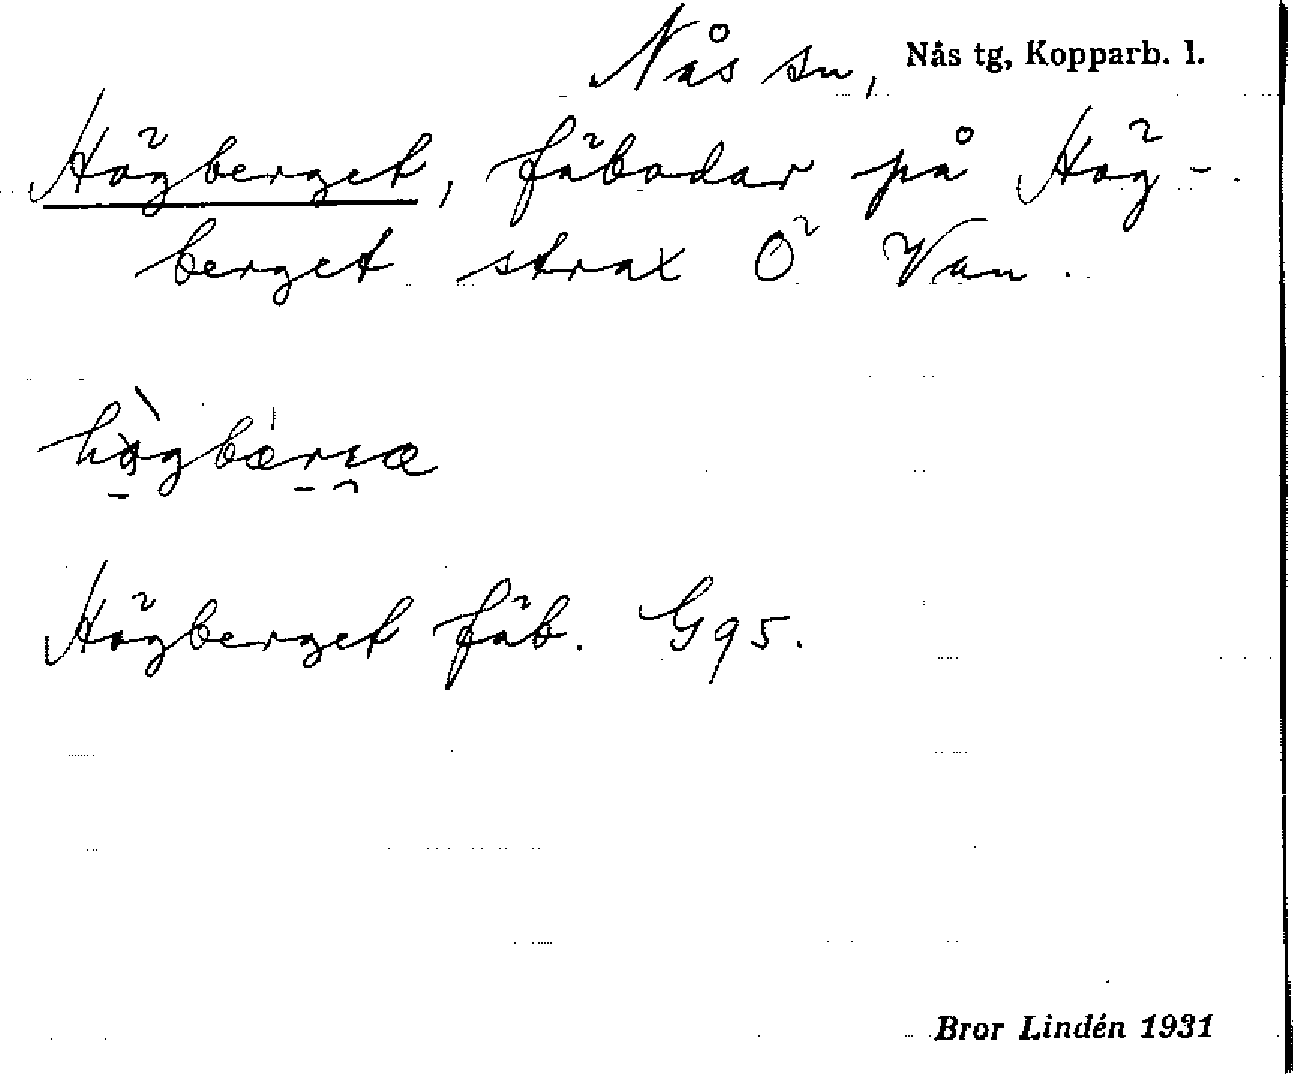 Nås sn, Nås tg, Kopparb. l.
Högberget, fäbodar på Hög-
berget strax Ö Van.
Högberget fäb. G95.
Bror Lindén 1931